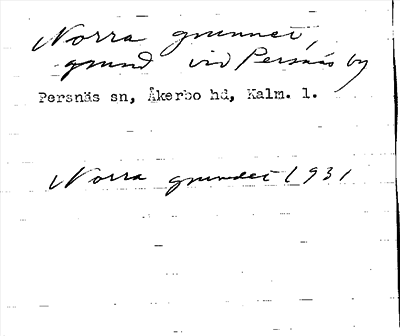 Norra grunnet,
grund vid Persnäs by
Persnäs sn, Åkerbo hd, Kalm. l.
Norra grundet 1931